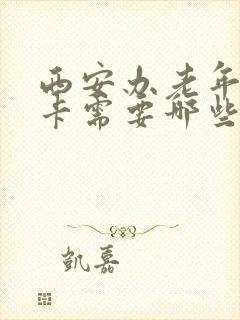 西安办老年
卡需要哪些
凯嘉